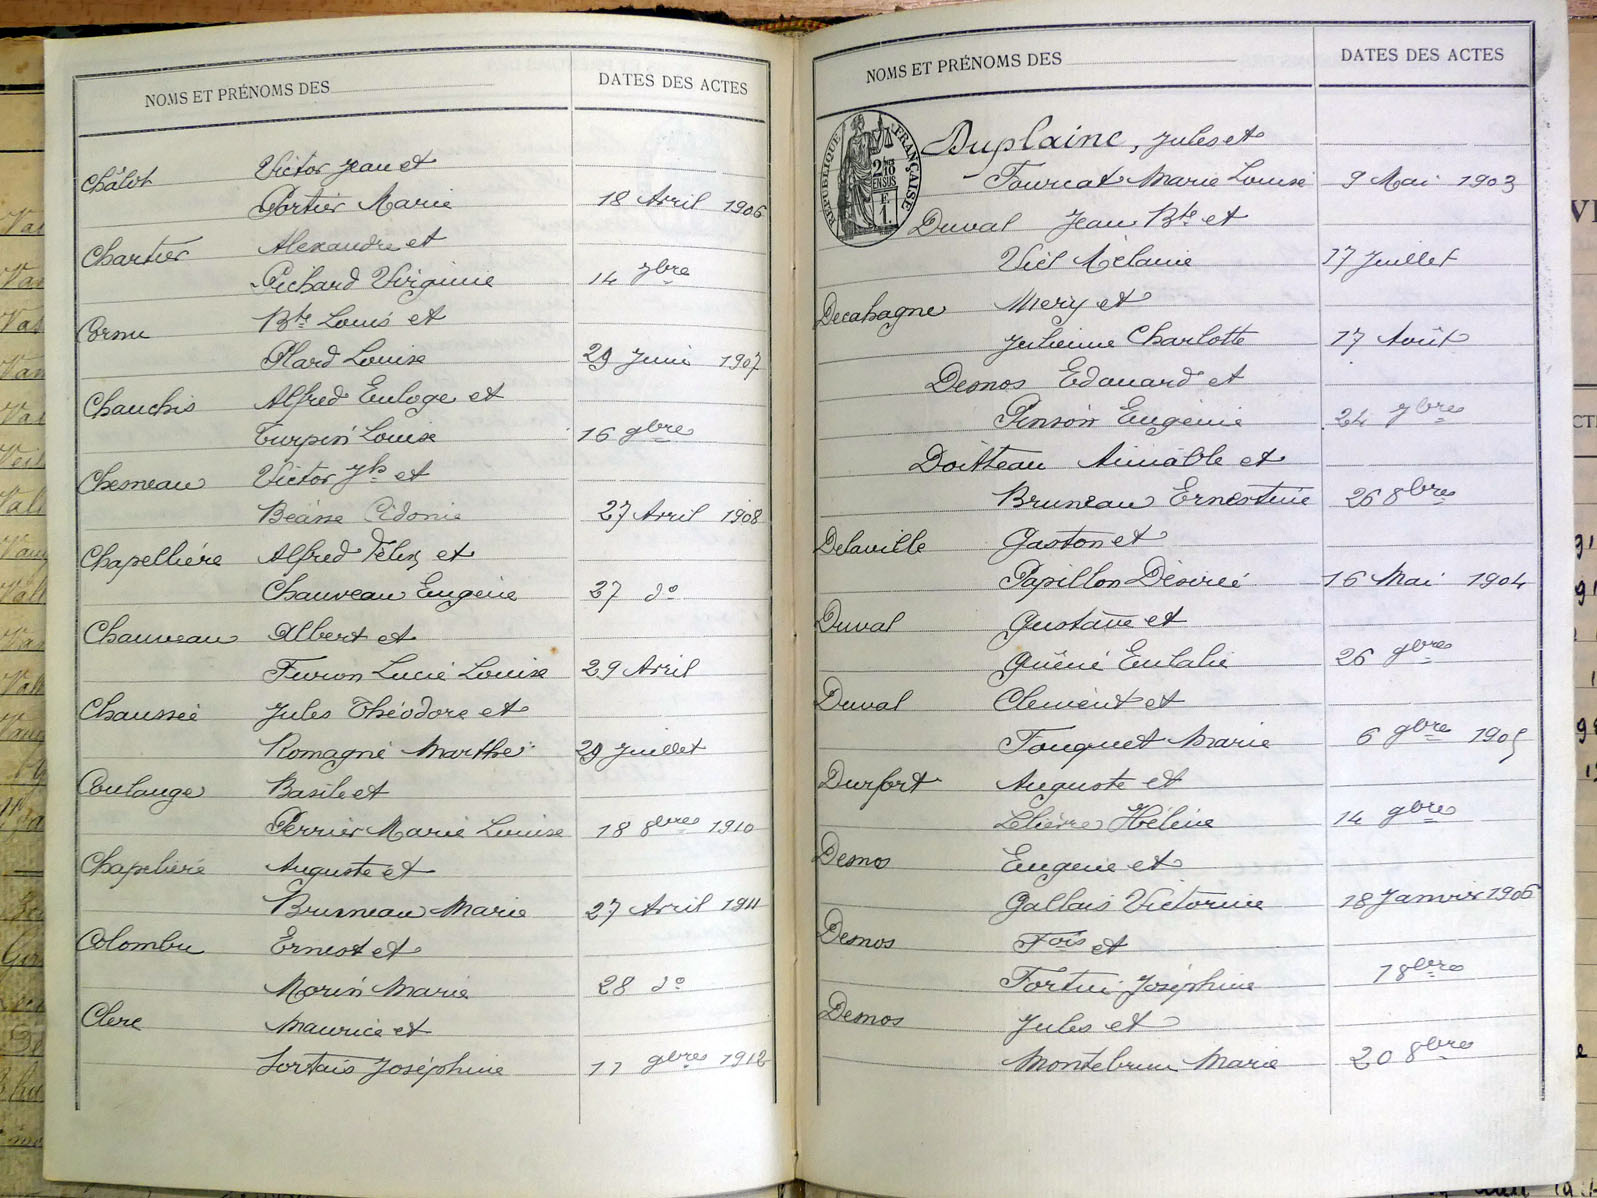 NOMS ET PRÉNOMS DES
DATES DES ACTES
Châlot Victor Jean et
Portier Marie 18 Avril 1906
Chartier Alexandre et
Pichard Virginie 14 7bre
Cornu Bte Louis et
Plard Louise 29 Juin 1907
Chauchis Alfred Euloge et
Turpin Louise 16 9bre
Chesneau Victor Jh et
Béasse Cidonie 27 Avril 1908
Chapellière Alfred Félix et
Chauveau Eugénie 27 do
Chauveau Albert et
Furon Lucie Louise 29 Avril
Chaussée Jules Théodore et
Romagné Marthe 29 Juillet
Coulange Basile et
Perrier Marie Louise 18 8bres 1910
Chapelière Auguste et
Bruneau Marie 27 Avril 1911
Colombu Ernest et
Morin Marie 28 do
Clerc Maurice et
Sortais Joséphine 11 9bres 1912
NOMS ET PRÉNOMS DES
DATES DES ACTES
RÉPUBLIQUE FRANÇAISE
2/10
EN SUS
E
1.
Duplaine, Jules et
Fourcat Marie Louise 9 Mai 1903
Duval Jean Bte et
Viel Mélanie 17 Juillet
Decahagne Mery et
Julienne Charlotte 17 Août
Desnos Edouard et
Pinson Eugénie 24 7bres
Doitteau Aimable et
Bruneau Ernestine 26 8bres
Delaville Gaston et
Papillon Désirée 16 Mai 1904
Duval Gustave et
Guêné Eulalie 26 9bres
Duval Clement et
Fouquet Marie 6 9bre 1905
Durfort Auguste et
Lelièvre Hélène 14 9bres
Desnos Eugene et
Gallais Victorine 18 Janvier 1906
Desnos Fois et
Fortin Joséphine 1 8bres
Desnos Jules et
Montebrun Marie 20 8bres